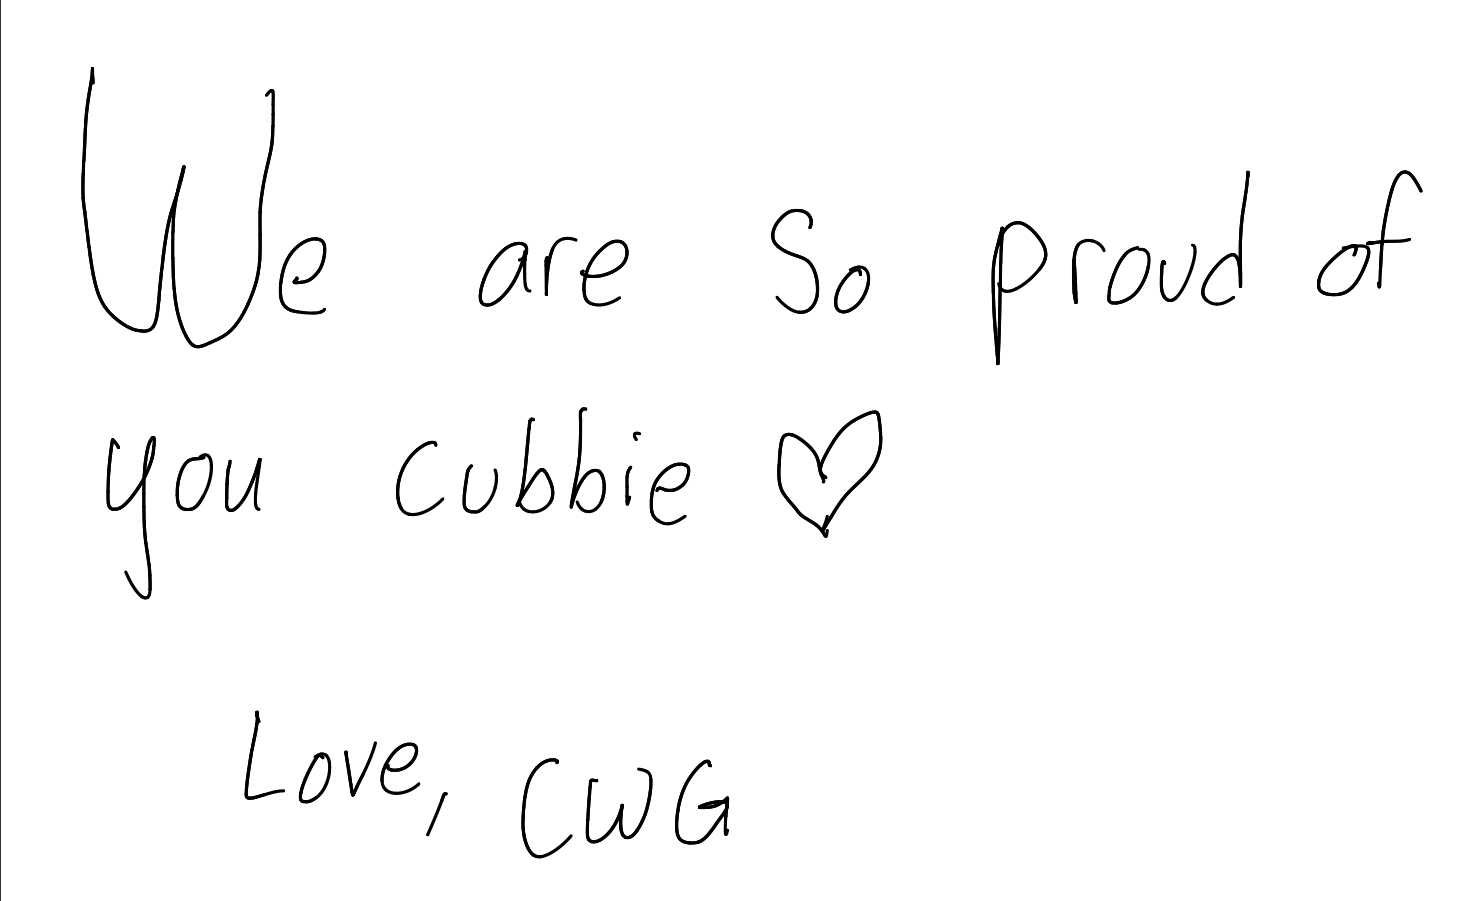 We are so proud of
you cubbie ♡
Love, CWG